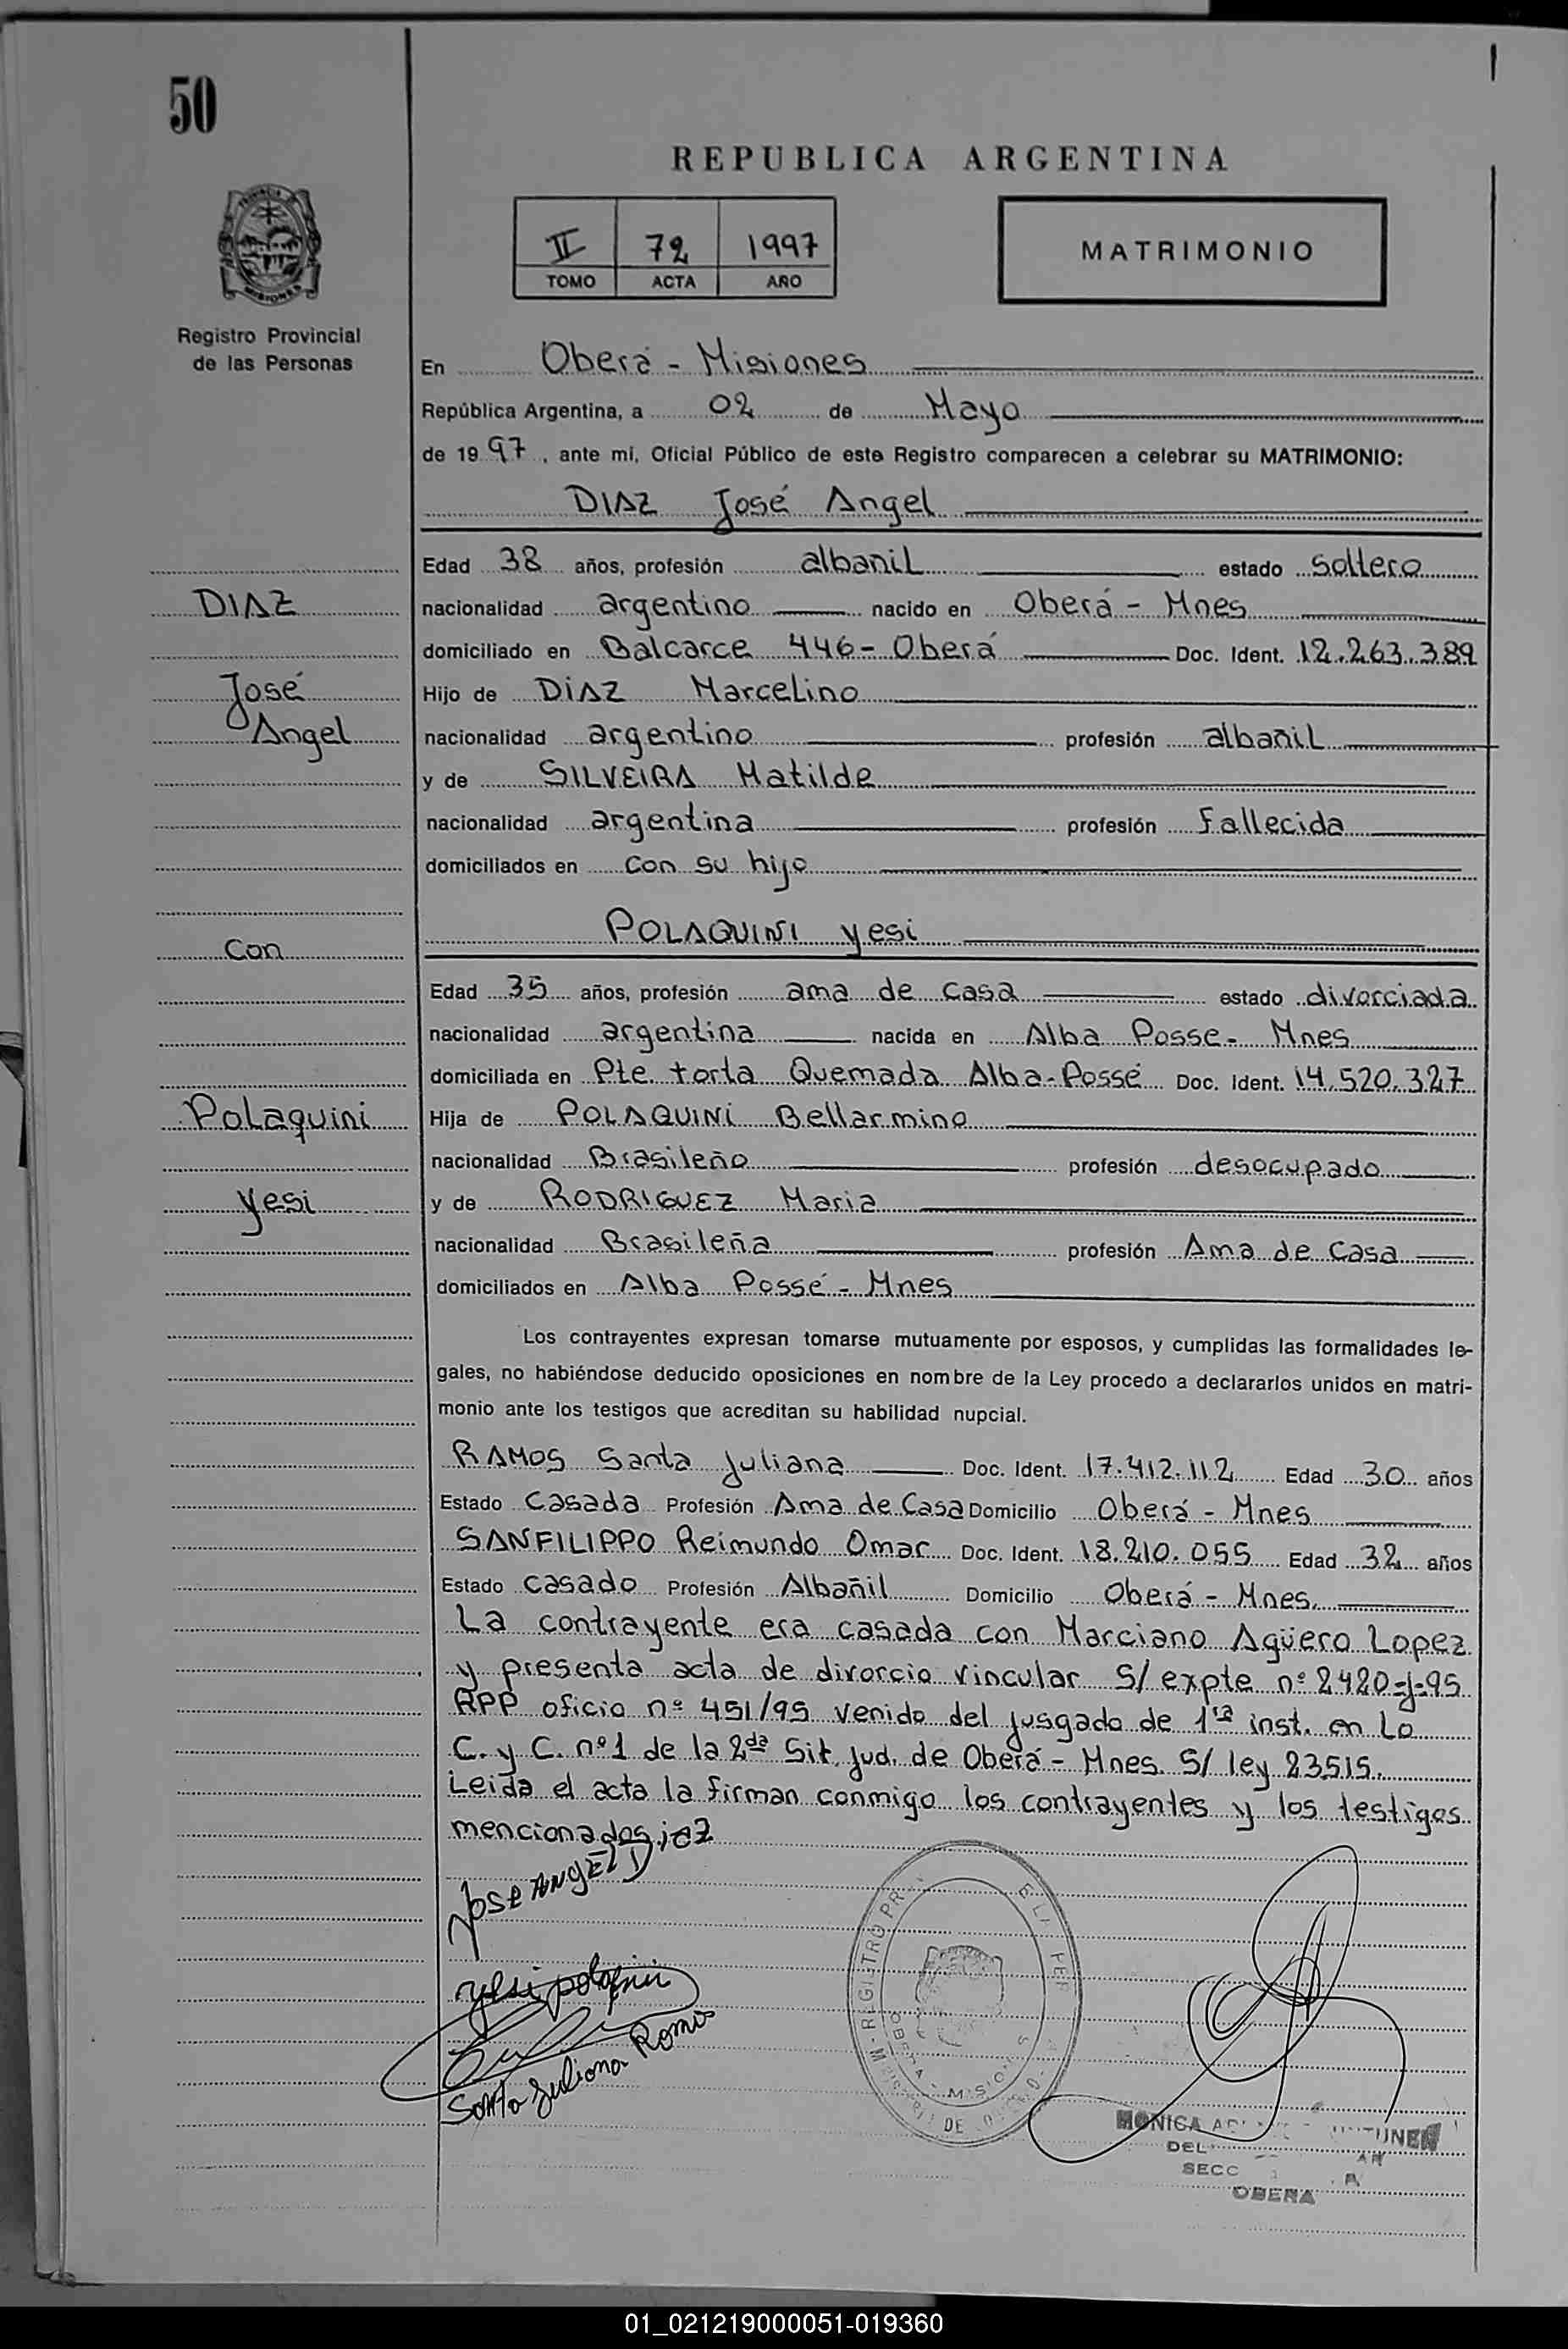 50
REPUBLICA ARGENTINA
II 72 1997
TOMO ACTA AÑO
MATRIMONIO
MISIONES
Registro Provincial
de las Personas
En Oberá - Misiones
República Argentina, a 02 de Mayo
de 1997, ante mi, Oficial Público de este Registro comparecen a celebrar su MATRIMONIO:
DIAZ José Angel
Edad 38 años, profesión albañil estado soltero
DIAZ
nacionalidad argentino nacido en Oberá - Mnes
domiciliado en Balcarce 446 - Oberá Doc. Ident. 12.263.389
José
Hijo de DIAZ Marcelino
Angel
nacionalidad argentino profesión albañil
y de SILVEIRA Matilde
nacionalidad argentina profesión Fallecida
domiciliados en con su hijo
Con
POLAQUINI yesi
Edad 35 años, profesión ama de casa estado divorciada
nacionalidad argentina nacida en Alba Posse - Mnes
domiciliada en Pte. torta Quemada Alba-Possé Doc. Ident. 14.520.327
Polaquini
Hija de POLAQUINI Bellarmino
nacionalidad Brasileño profesión desocupado
yesi
y de RODRIGUEZ Maria
nacionalidad Brasileña profesión Ama de Casa
domiciliados en Alba Possé - Mnes
Los contrayentes expresan tomarse mutuamente por esposos, y cumplidas las formalidades le-
gales, no habiéndose deducido oposiciones en nombre de la Ley procedo a declararlos unidos en matri-
monio ante los testigos que acreditan su habilidad nupcial.
RAMOS Santa Juliana Doc. Ident. 17.412.112 Edad 30 años
Estado Casada Profesión Ama de Casa Domicilio Oberá - Mnes
SANFILIPPO Reimundo Omar Doc. Ident. 18.210.055 Edad 32 años
Estado casado Profesión Albañil Domicilio Oberá - Mnes.
La contrayente era casada con Marciano Agüero Lopez
y presenta acta de divorcio vincular S/ expte nº 2420-J-95
RPP oficio nº 451/95 venido del jusgado de 1ra inst. en Lo
C. y C. nº1 de la 2da Sit. Jud. de Oberá - Mnes. S/ ley 23515.
Leida el acta la firman conmigo los contrayentes y los testigos
mencionados
JOSE ANGEL DIAZ
yesi polaquini
Santa Juliana Ramos
REGISTRO
OBERA MISIONES
MONICA
DEL
SECC
OBERA
01_021219000051-019360